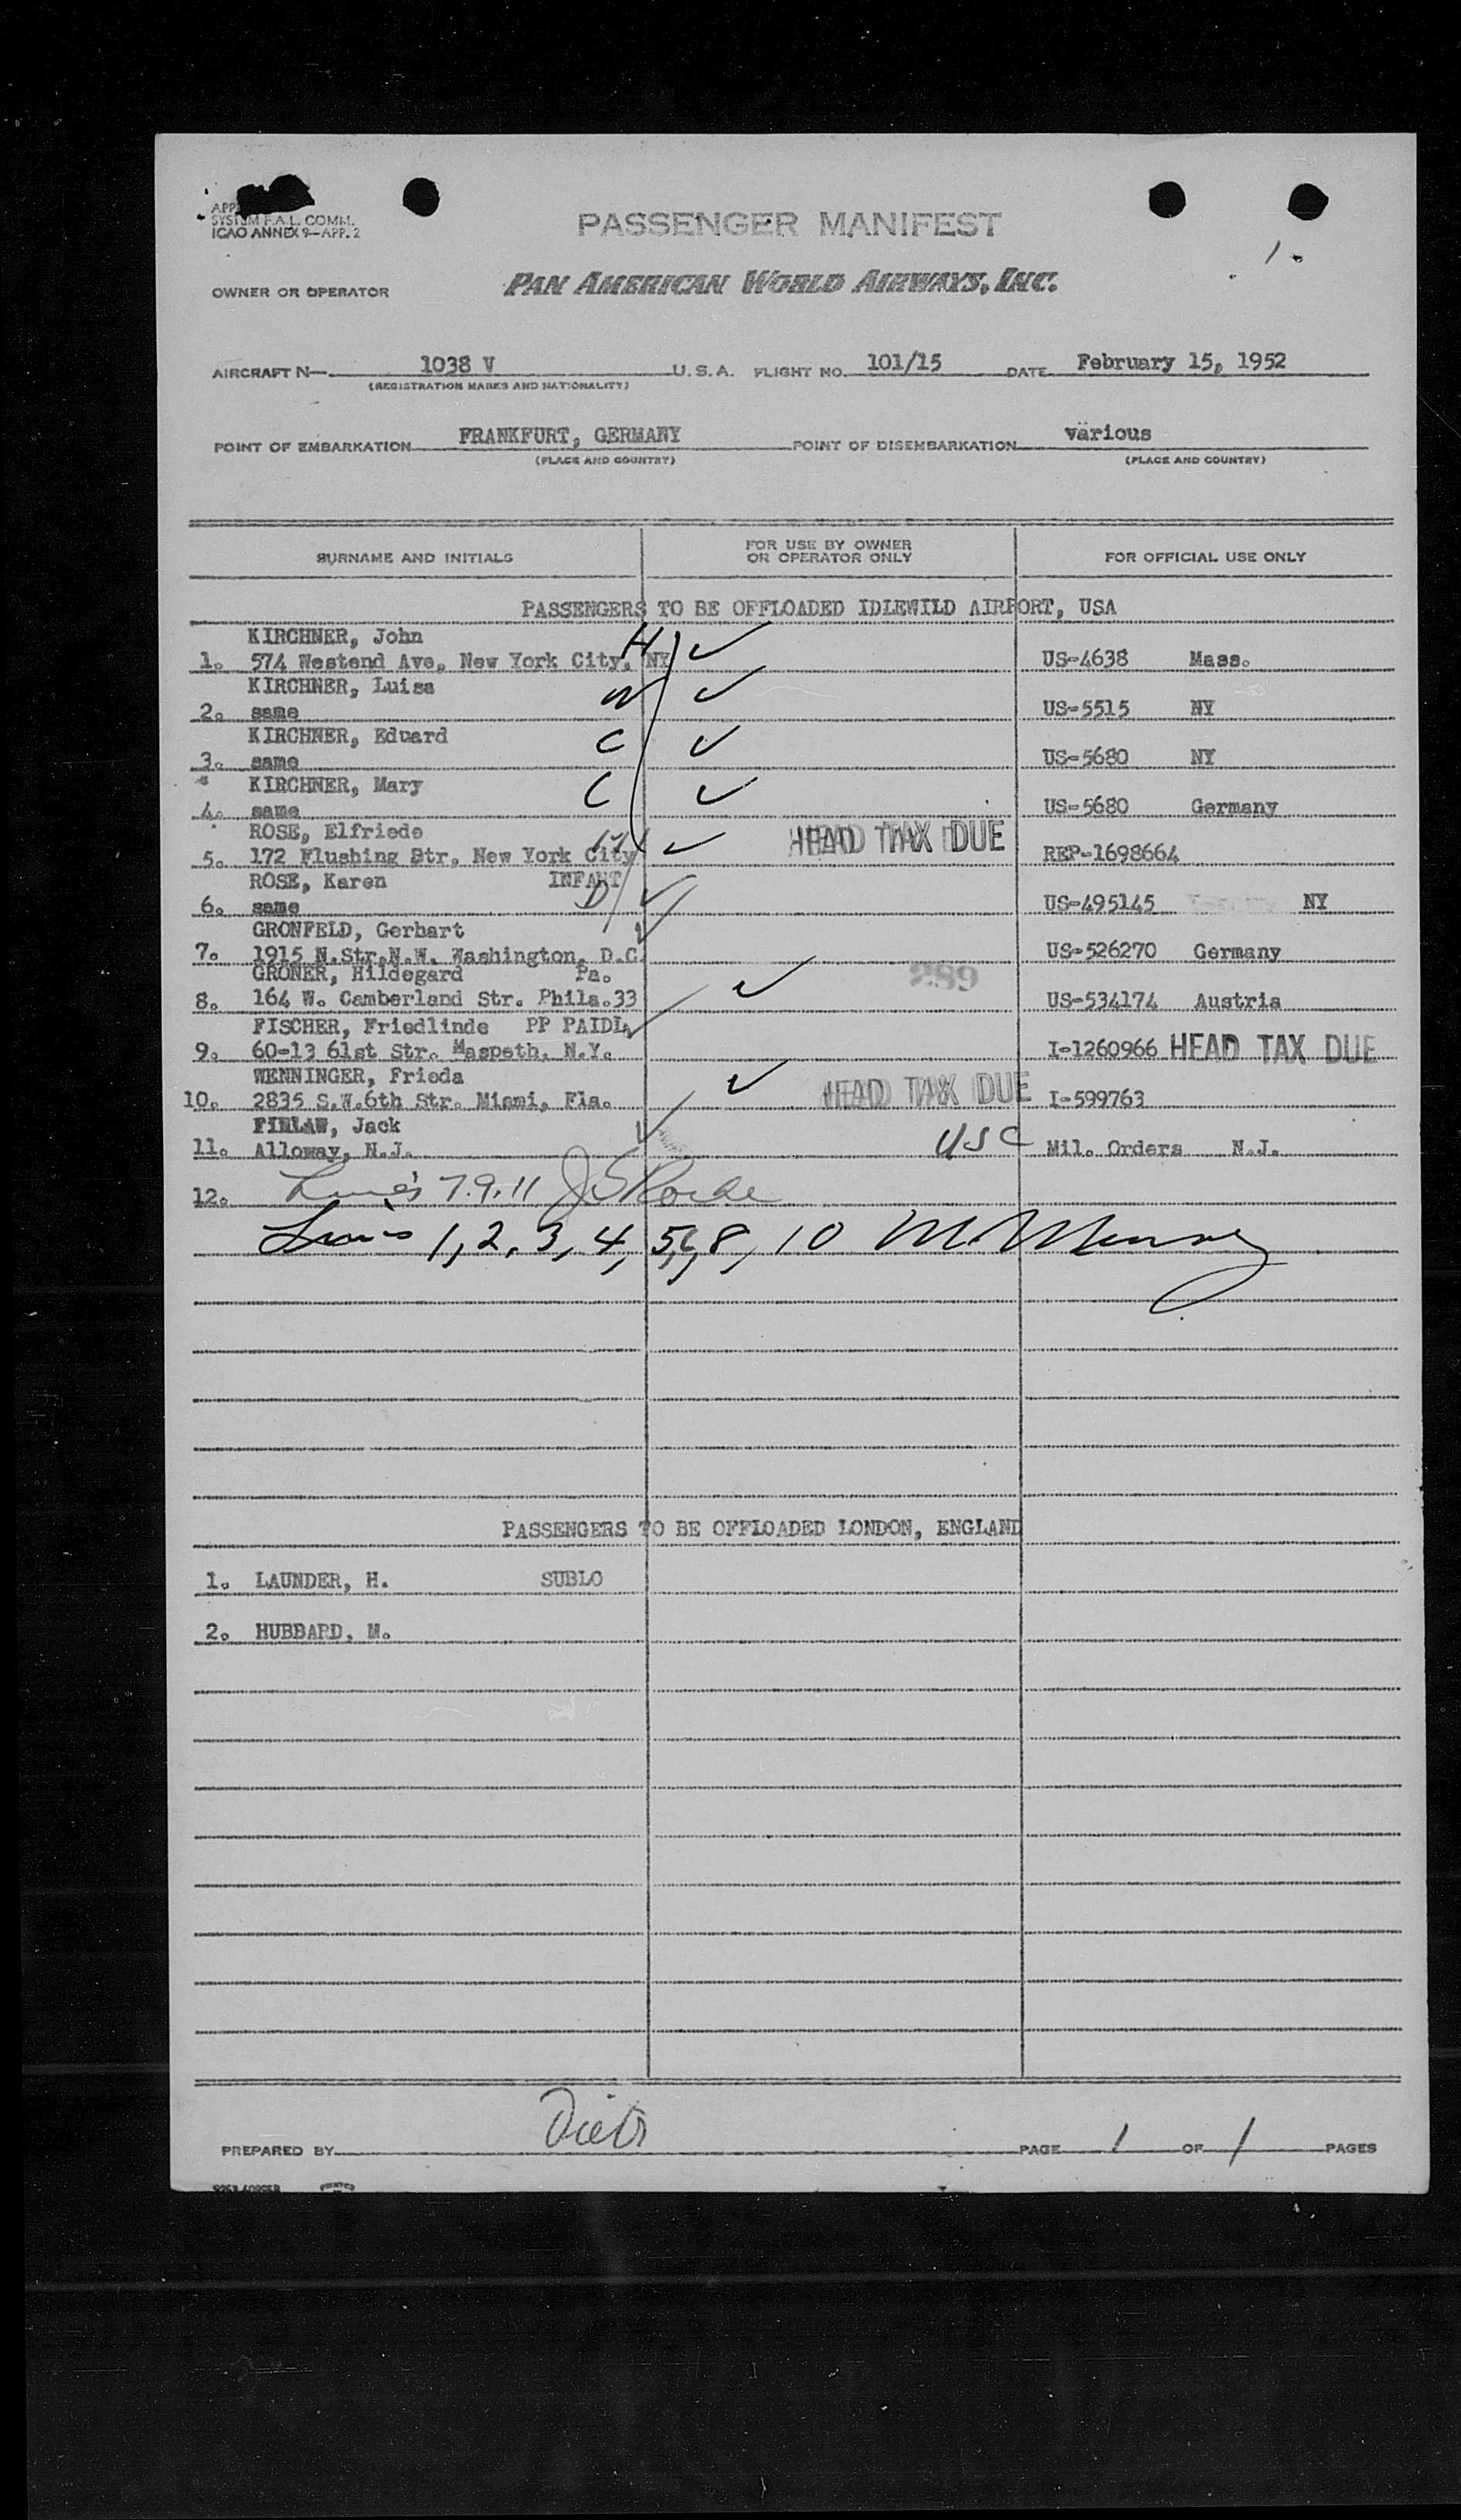 APP
SYSTEM F.A.L. COMM.
ICAO ANNEX 9—APP. 2
PASSENGER MANIFEST
1.
OWNER OR OPERATOR PAN AMERICAN WORLD AIRWAYS, INC.
AIRCRAFT N— 1038 V U.S.A. FLIGHT NO. 101/15 DATE February 15, 1952
(REGISTRATION MARKS AND NATIONALITY)
POINT OF EMBARKATION FRANKFURT, GERMANY POINT OF DISEMBARKATION various
(PLACE AND COUNTRY) (PLACE AND COUNTRY)
SURNAME AND INITIALS FOR USE BY OWNER OR OPERATOR ONLY FOR OFFICIAL USE ONLY
PASSENGERS TO BE OFFLOADED IDLEWILD AIRPORT, USA
KIRCHNER, John H
1. 574 Westend Ave, New York City, NY US-4638 Mass.
KIRCHNER, Luisa W
2. same US-5515 NY
KIRCHNER, Eduard C
3. same US-5680 NY
KIRCHNER, Mary C
4. same US-5680 Germany
ROSE, Elfriede HEAD TAX DUE
5. 172 Flushing Str, New York City REP-1698664
ROSE, Karen INFANT
6. same D US-495145 NY
GRONFELD, Gerhart
7. 1915 N.Str.N.W. Washington, D.C. US-526270 Germany
GRONER, Hildegard Pa. 289
8. 164 W. Camberland Str. Phila.33 US-534174 Austria
FISCHER, Friedlinde PP PAID
9. 60-13 61st Str. Maspeth, N.Y. I-1260966 HEAD TAX DUE
WENNINGER, Frieda
10. 2835 S.W.6th Str. Miami, Fla. HEAD TAX DUE I-599763
FINLAW, Jack
11. Alloway, N.J. USC Mil. Orders N.J.
12. Line's 7.9.11
Line's 1, 2, 3, 4, 5, 6, 8, 10
PASSENGERS TO BE OFFLOADED LONDON, ENGLAND
1. LAUNDER, H. SUBLO
2. HUBBARD, M.
PREPARED BY PAGE 1 OF 1 PAGES